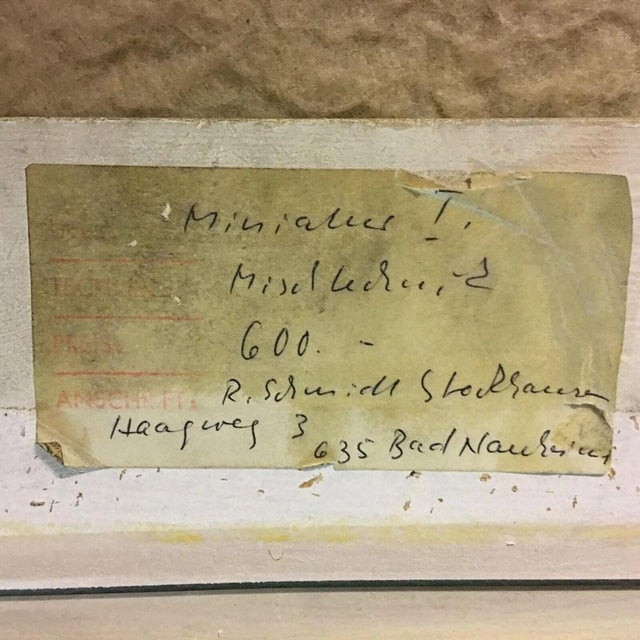 Miniatur I.
TECHNIK Mischtechnik
PREIS 600.-
ANSCHRIFT: R. Schmidt Stockhausen
Haagweg 3
635 Bad Nauheim